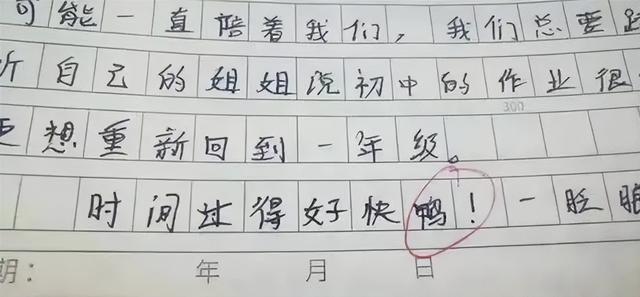 可能一直陪着我们,我们总要
听自己的姐姐说初中的作业很
300
想重新回到一年级。
时间过得好快鸭!一眨眼
期: 年 月 日